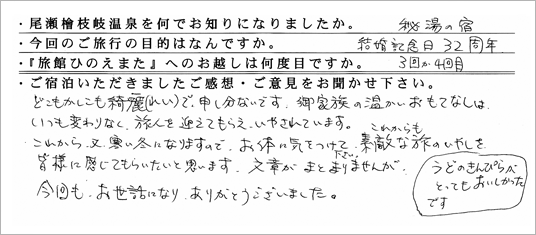 ・尾瀬檜枝岐温泉を何でお知りになりましたか。 秘湯の宿
・今回のご旅行の目的はなんですか。 結婚記念日32周年
・『旅館ひのえまた』へのお越しは何度目ですか。 3回か4回目
・ご宿泊いただきましたご感想・ご意見をお聞かせ下さい。
どこもかしこも綺麗(れい)で、申し分ないです。御家族の温かいおもてなしは、
いつも変わりなく、旅人を迎えてもらえ、いやされています。
これからも
これから又、寒い冬になりますので、お体に気をつけて、素敵な旅のいやしを
下さい。
皆様に感じてもらいたいと思います。文章がまとまりませんが、
今回も、お世話になり、ありがとうございました。
うどのきんぴらが
とってもおいしかった
です